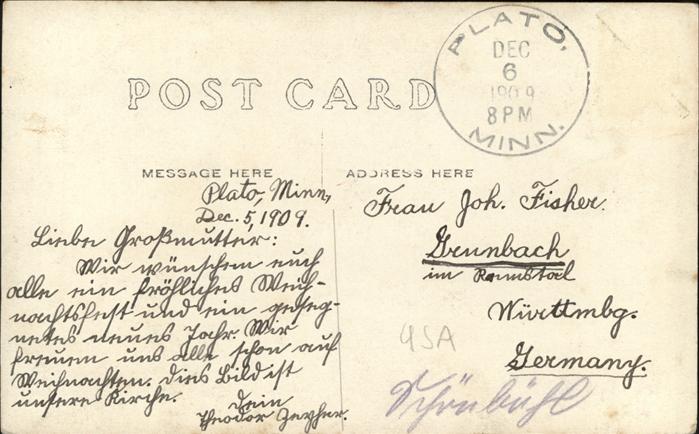 PLATO,
DEC
6
1909
8 PM
MINN.
POST CARD
MESSAGE HERE
ADDRESS HERE
Plato, Minn,
Dec. 5, 1909.
Liebe Großmutter:
Wir wünschen euch
alle ein fröhliches Weih-
nachtsfest und ein geseg-
netes neues Jahr. Wir
freuen uns alle schon auf
Weihnachten. Dies Bild ist
unsere Kirche.
Dein
Theodor
Frau Joh. Fisher.
Grunbach
im
Württmbg.
Germany.
USA
Schönbühl